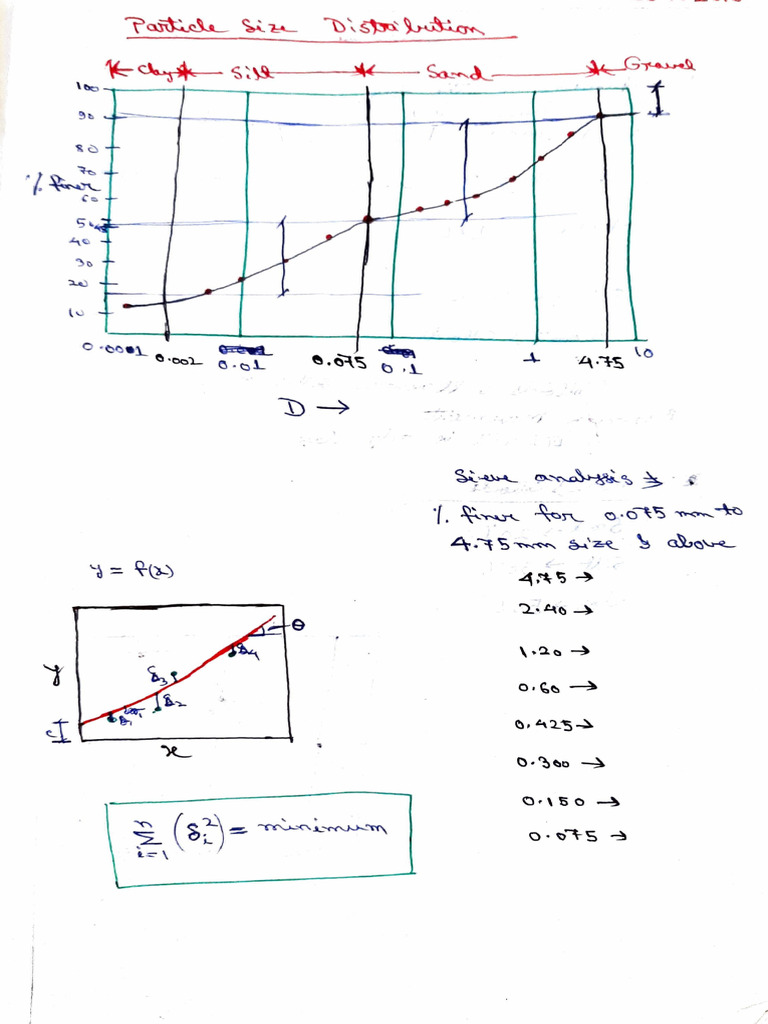 Particle Size Distribution
Clay Silt Sand Gravel
100
90
80
70
% finer
60
50
40
30
20
10
0.0001 0.002 0.01 0.075 0.1 1 4.75 10
D →
Sieve analysis
% finer for 0.075 mm to
4.75mm size & above
4.75 →
2.40 →
1.20 →
0.60 →
0.425 →
0.300 →
0.150 →
0.075 →
y = f(x)
θ
y
δ4
δ3
δ2
δ1
c
x
n
∑ (δi²) = minimum
i=1